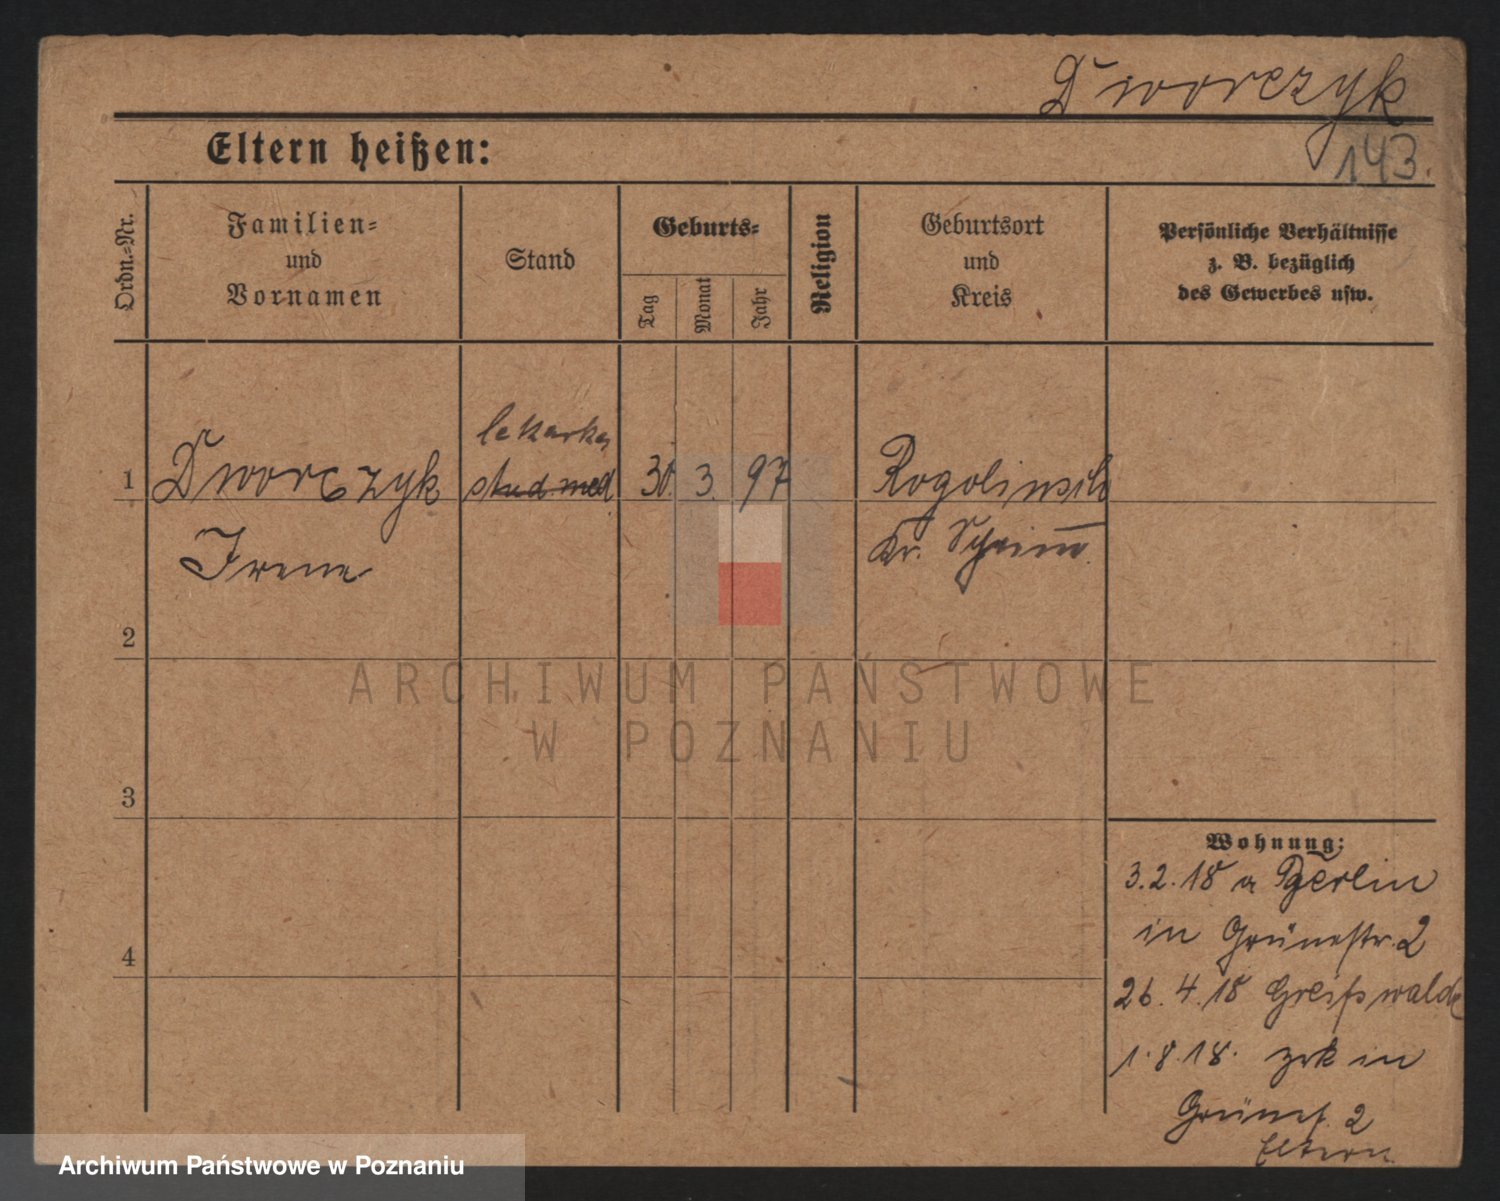 Dworczyk
143.
Eltern heißen:
Ordn.=Nr.
Familien=
und
Vornamen
Stand
Geburts=
Tag
Monat
Jahr
Religion
Geburtsort
und
Kreis
Persönliche Verhältnisse
z. B. bezüglich
des Gewerbes usw.
lekarka
1 Dworczyk stud med 30. 3. 97
Irene
Kr. Schrimm
2
3
4
ARCHIWUM PAŃSTWOWE
W POZNANIU
Wohnung:
3.2.18 a Berlin
in Grünestr. 2
26. 4. 18 Greifswalde
1.8.18. zrk in
Grünest. 2
Eltern
Archiwum Państwowe w Poznaniu